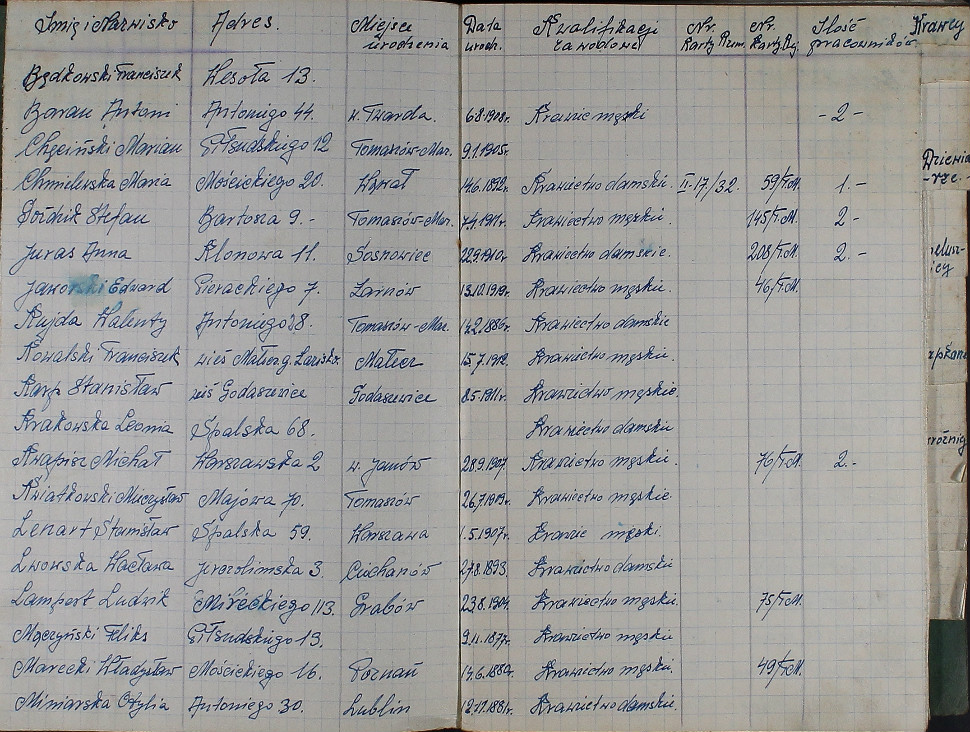 Imię i Nazwisko Adres. Miejsce urodzenia Data urodz. Kwalifikacji zawodowe Nr. Karty Rzem. Nr. Karty Rej. Ilość pracowników Krawcy
Będkowski Franciszek Wesoła 13.
Baran Antoni Antoniego 44. w. Twarda. 6.8.1908r. Krawiec męski - 2 -
Chęciński Marian Piłsudskiego 12 Tomaszów-Maz. 9.1.1905r.
Chmielewska Maria Mościckiego 20. 14.6.1892r. Krawiectwo damskie. II-17/32. 59/T.M. 1.-
Stefan Bartosza 9.- Tomaszów-Maz. 7.4.1911r. Krawiectwo męskie. 145/T.M. 2-
Juras Anna Klonowa 11. Sosnowiec 22.9.1910r. Krawiectwo damskie. 208/T.M. 2.-
Jaworski Edward Pierackiego 7. 13.10.1919r. Krawiectwo męskie. 46/T.M.
Kujda Walenty Antoniego 28. Tomaszów-Maz. 14.2.1886r. Krawiectwo damskie
Kowalski Franciszek wieś Małecz g. Łazisko. Małecz 15.7.1912. Krawiectwo męskie.
Karp Stanisław wieś Godaszewice Godaszewice 8.5.1911r. Krawiectwo męskie.
Krakowska Leonia Spalska 68. Krawiectwo damskie
Kwapisz Michał Warszawska 2 w. Janów 28.9.1907 Krawiectwo męskie. 76/T.M. 2.-
Kwiatkowski Mieczysław Majowa 70. Tomaszów 26.7.1919r. Krawiectwo męskie.
Lenart Stanisław Spalska 59. Warszawa 1.5.1907r. Krawiec męski.
Lwowska Wacława Jerozolimska 3. Ciechanów 27.8.1893. Krawiectwo damskie
Lampert Ludwik Mireckiego 113. Grabów 23.8.1904. Krawiectwo męskie. 75/T.M.
Mączyński Feliks Piłsudskiego 19. 9.11.1877r. Krawiectwo męskie
Marecki Władysław Mościckiego 16. Poznań 14.6.1889r. Krawiectwo męskie. 49/T.M.
Miniarska Otylia Antoniego 30. Lublin 12.12.1881r. Krawiectwo damskie.